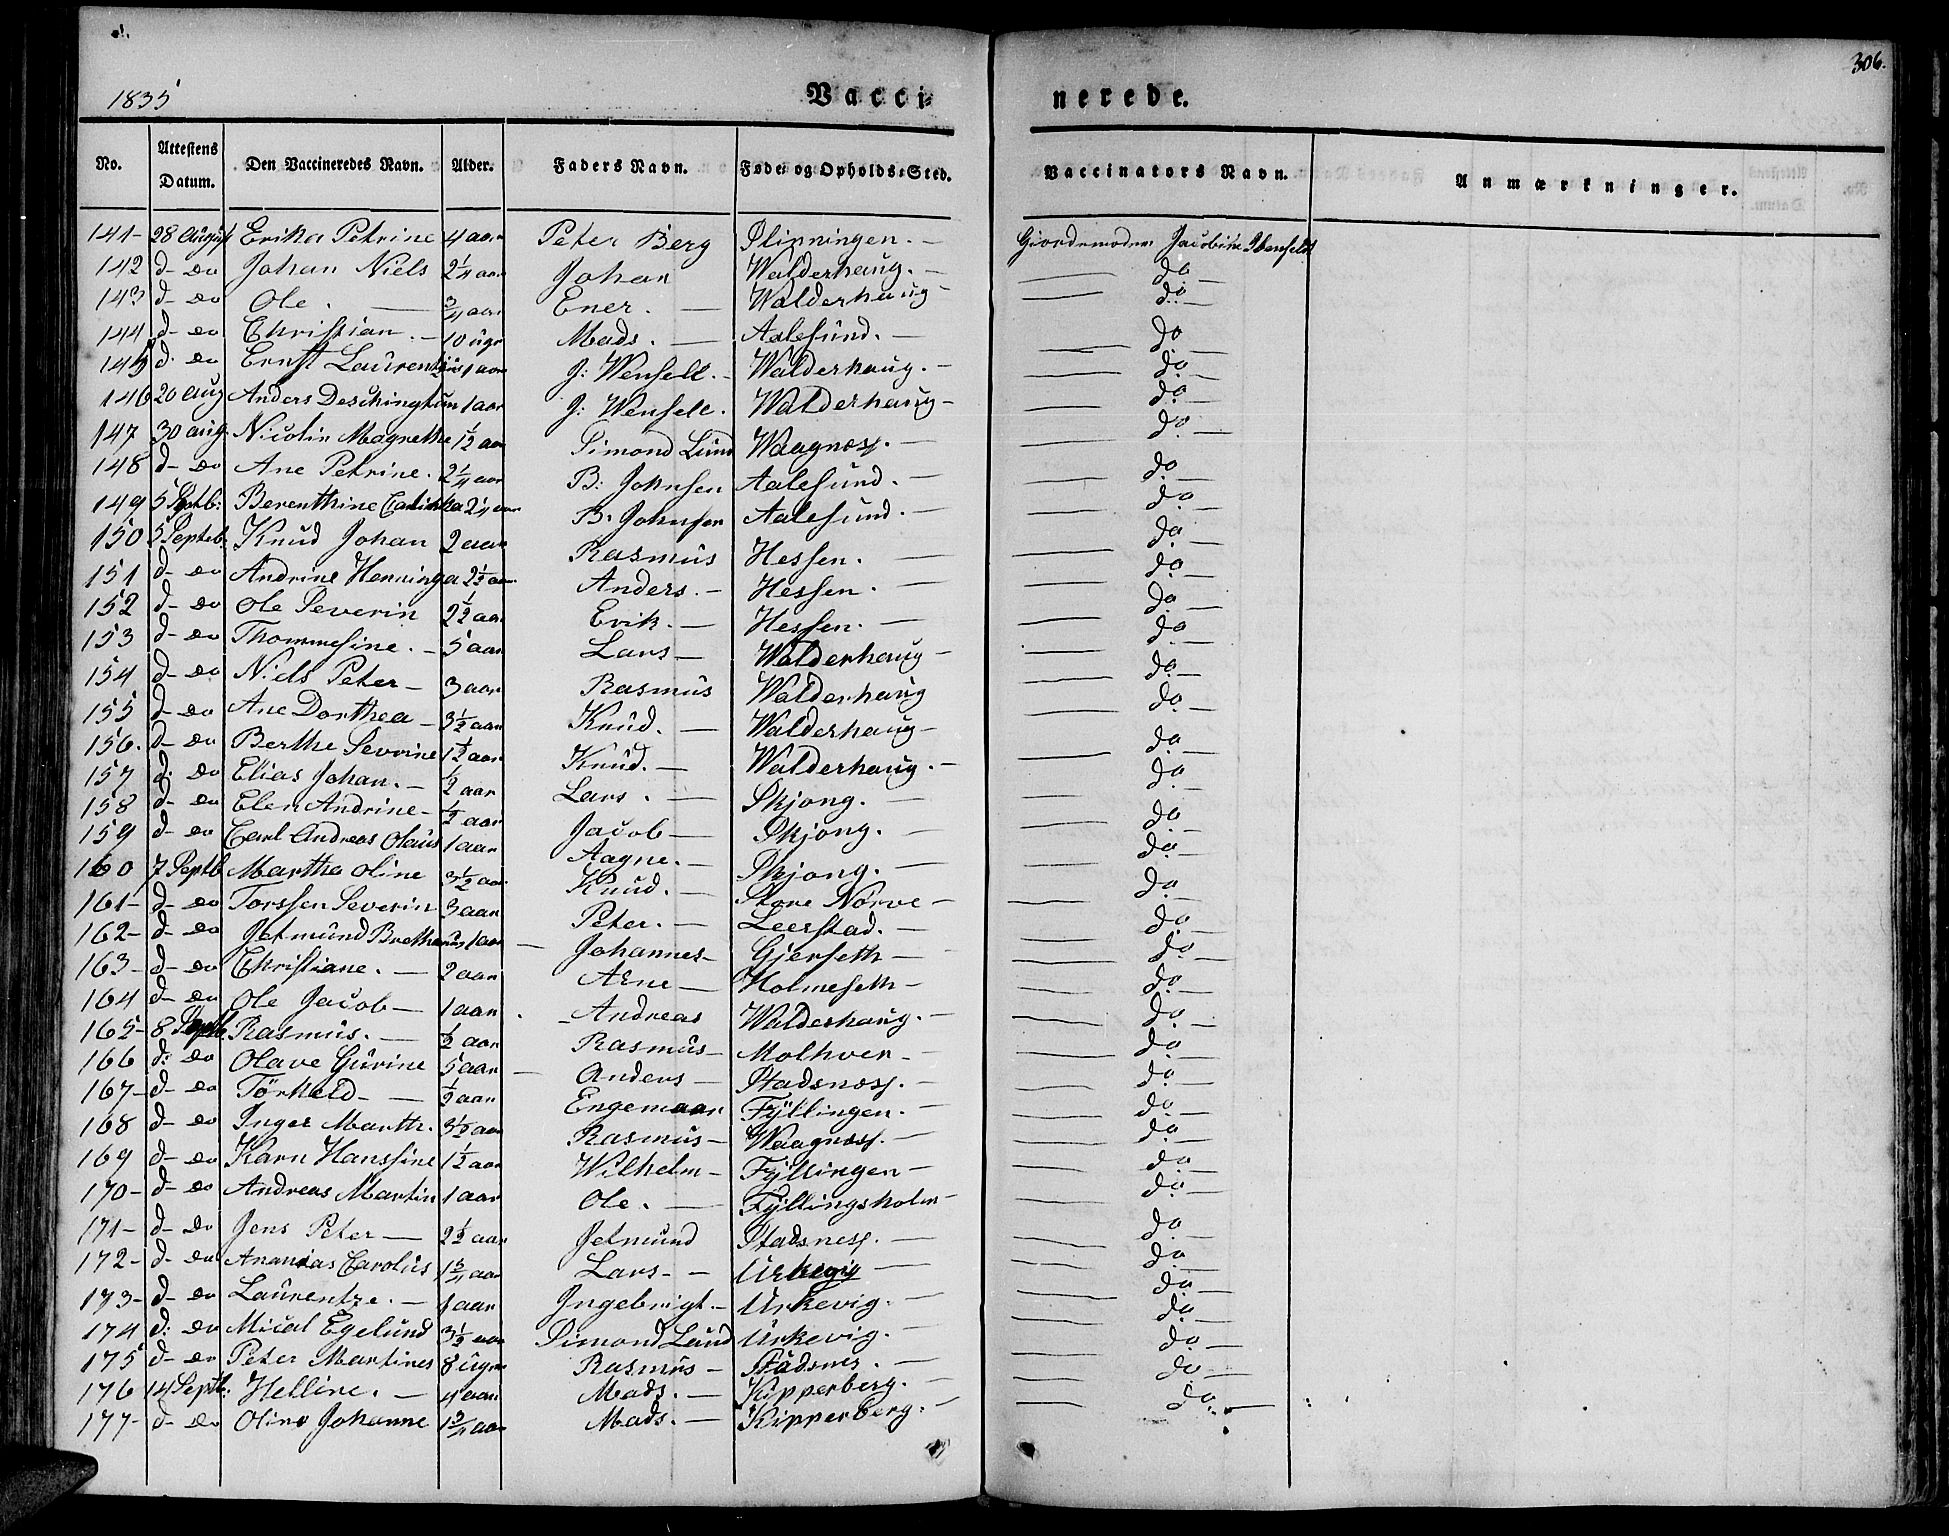 306.
1835
Vacci- nerede.
No. Attestens Datum. Den Vaccineredes Navn. Alder. Faders Navn. Føde- og Opholds-Sted. Vaccinators Navn. Anmærkninger.
141- 28 August Erika Petrine 4 aar Peter Berg Slinningen. - Giordemoder Jacobine Ibenfeldt
142 d- do Johan Niels 2 1/4 aar Johan Walderhaug. - do
143 d- do Ole. 3/4 aar Ener. - Walderhaug - do
144 d- do Christian. - 10 uger Mads. - Aalesund. - do
145 d- do Ernst Laurentzius 1 aar J: Wensell. - Walderhaug. - do
146 20 Aug Anders Deschington 1 aar J: Wensell. Walderhaug - do
147 30 aug. Nicolin Magrethe 1 1/2 aar Simond Lund Waagnæs. - do
148 d- do Ane Petrine. 2 1/4 aar B: Johnsen Aalesund. - do
149 5 Septb: Berenthine Cathinka 2 1/4 aar B: Johnsen Aalesund. - do
150 5 Septeb. Knud Johan 2 aar Rasmus Hessen. do
151 d- do Andrine Henninga 2 1/2 aar Anders. - Hessen. - do
152 d- do Ole Severin 2 1/2 aar Erik. - Hessen. - do
153 d- do Thommesine. - 5 aar Lars - Walderhaug - do
154 d- do Niels Peter - 3 aar Rasmus Walderhaug do
155 d- do Ane Dorthea - 3 1/2 aar Knud. - Walderhaug - do
156. d- do Berthe Severine 1 1/2 aar Knud. - Walderhaug. - do
157 d: do Elias Johan. - 1/2 aar Lars. - Skjong. - do
158 d- do Elen Andrine - 1/2 aar Jacob - Skjong. - do
159 d- do Carl Andreas Olaus 1 aar Aagne. - Skjong. - do
160 7 Septb Martha Oline 3 1/2 aar Knud. - Store Nørve - do
161- d- do Torssen Severin 3 aar Peter. - Leerstad. - do
162- d- do Jetmund Brethenus 1 aar Johannes - Gjerseth - do
163- d- do Christiane. - 2 aar Arne - Holmeseth - do
164 d- do Ole Jacob - 1 aar Andreas Walderhaug. - do
165- 8 Septb. Rasmus. - 1/2 aar Rasmus - Molhver - do
166 d: do Olave Gurine 5 aar Anders - Stadsnæs. - do
167- d- do Tørheld - 1/2 aar Engemaar Fyllingen. - do
168 d- do Inger Marth. 3 1/2 aar Rasmus - Waagnæs. - do
169 d- do Karn Hanssine 1 1/2 aar Wilhelm - Fyllingen - do
170- d- do Andreas Martin 1 aar Ole. - Fyllingsholm - do
171- d- do Jens Peter - 2 1/2 aar Jetmund Stadsnes. - do
172- d- do Ananias Carolus 1 3/4 aar Lars - Urkevig - do
173- d- do Laurentze. - 1 aar Ingebrigt - Urkevig. - do
174 d: do Mical Egelund 3 1/2 aar Simond Lund Urkevig. - do
175 d- do Peter Martines 8 uger Rasmus - Stadsnes. - do
176 14 Septb. Helline. - 4 aar Mads. - Kipperberg. - do
177- d- do Oline Johanne 1 3/4 aar Mads. - Kipperberg. - do